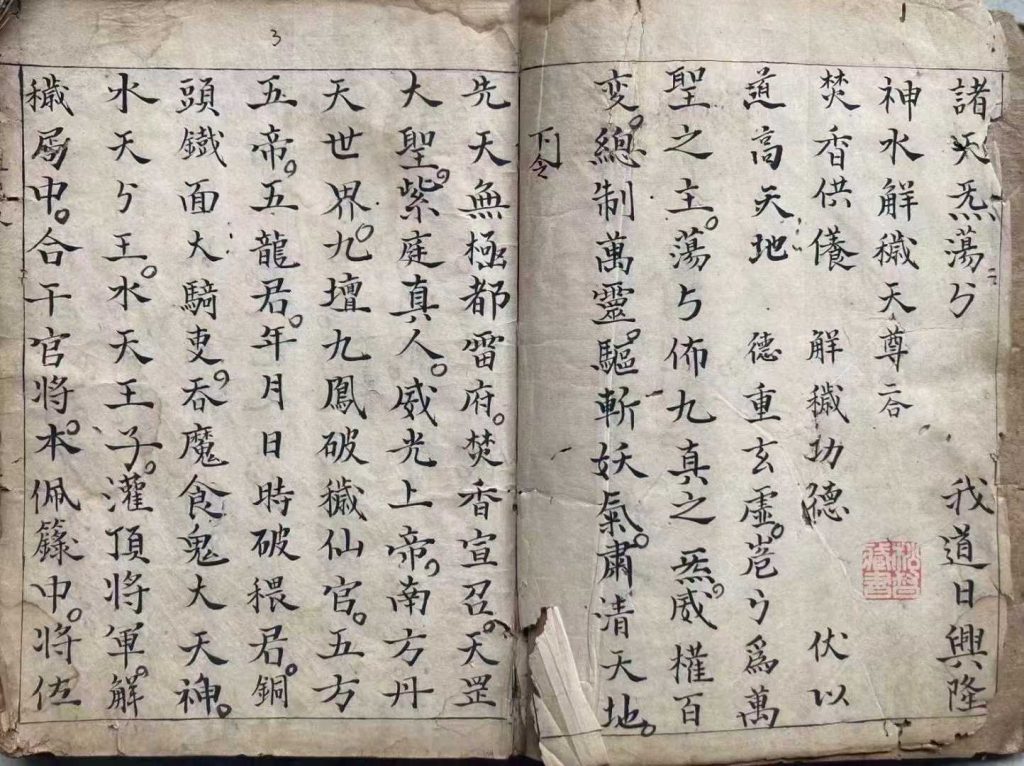 諸天炁蕩〻 二 我道日興隆
神水解穢天尊 二合
焚香供養 解穢功德 伏以
道高天地 德重玄虛。〻爲萬
聖之主。蕩〻佈九真之炁。威權百
變。總制萬靈。驅斬妖氣。肅清天地。
下令
3
先天無極都雷府。焚香宣召。天罡
大聖。紫庭真人。威光上帝。南方丹
天世界。九壇九鳳破穢仙官。五方
五帝。五龍君。年月日時破穢君。銅
頭鐵面大騎吏。吞魔食鬼大天神。
水天〻王。水天王子。灌頂將軍。解
穢局中。合干官將。本佩籙中。將佐